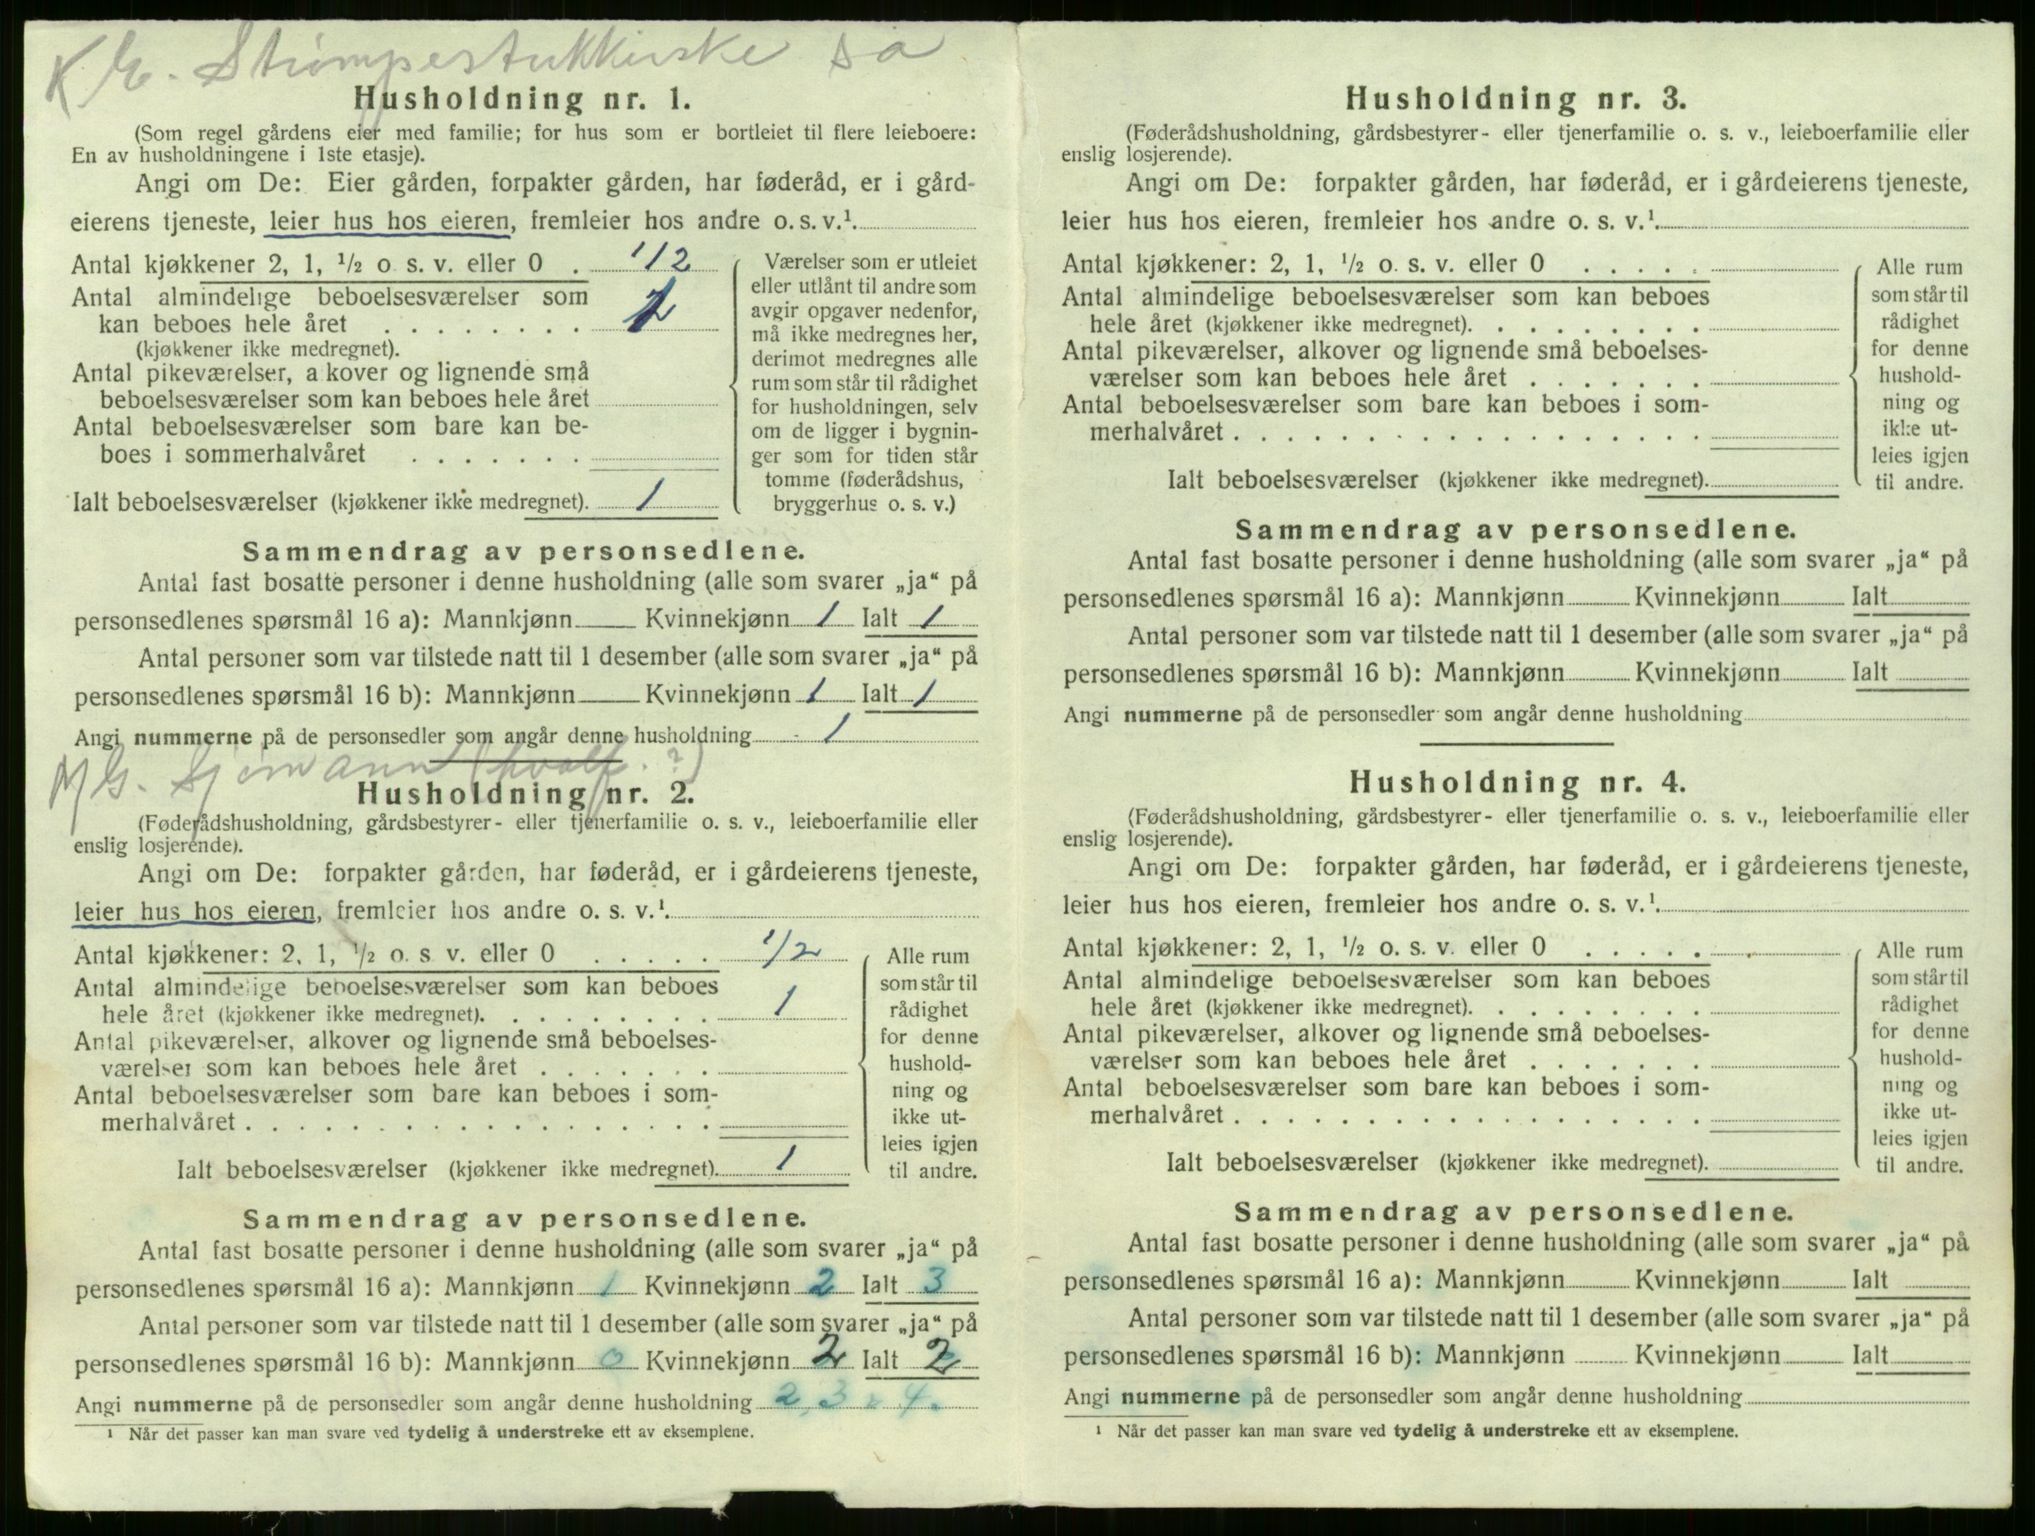 K E. Strømpestrikkerske sa
Husholdning nr. 1.
(Som regel gårdens eier med familie; for hus som er bortleiet til flere leieboere:
En av husholdningene i 1ste etasje).
Angi om De: Eier gården, forpakter gården, har føderåd, er i gård-
eierens tjeneste, leier hus hos eieren, fremleier hos andre o. s. v.¹.
Antal kjøkkener 2, 1, ½ o. s. v. eller 0 . 1/2
Antal almindelige beboelsesværelser som
kan beboes hele året . . . . . . . . 1
(kjøkkener ikke medregnet).
Antal pikeværelser, a kover og lignende små
beboelsesværelser som kan beboes hele året
Antal beboelsesværelser som bare kan be-
boes i sommerhalvåret . . . . . . .
Ialt beboelsesværelser (kjøkkener ikke medregnet). 1
Værelser som er utleiet
eller utlånt til andre som
avgir opgaver nedenfor,
må ikke medregnes her,
derimot medregnes alle
rum som står til rådighet
for husholdningen, selv
om de ligger i bygnin-
ger som for tiden står
tomme (føderådshus,
bryggerhus o. s. v.)
Sammendrag av personsedlene.
Antal fast bosatte personer i denne husholdning (alle som svarer „ja“ på
personsedlenes spørsmål 16 a): Mannkjønn Kvinnekjønn 1 Ialt 1
Antal personer som var tilstede natt til 1 desember (alle som svarer „ja“ på
personsedlenes spørsmål 16 b): Mannkjønn Kvinnekjønn 1 Ialt 1
Angi nummerne på de personsedler som angår denne husholdning 1
M G. Sjømann (hvalf. ?)
Husholdning nr. 2.
(Føderådshusholdning, gårdsbestyrer- eller tjenerfamilie o. s. v., leieboerfamilie eller
enslig losjerende).
Angi om De: forpakter gården, har føderåd, er i gårdeierens tjeneste,
leier hus hos eieren, fremleier hos andre o. s. v.¹.
Antal kjøkkener: 2, 1, ½ o. s. v. eller 0 . . . . . 1/2
Antal almindelige beboelsesværelser som kan beboes
hele året (kjøkkener ikke medregnet). . . . . . . . . 1
Antal pikeværelser, alkover og lignende små beboelses-
værelser som kan beboes hele året . . . . . . .
Antal beboelsesværelser som bare kan beboes i som-
merhalvåret . . . . . . . . . . . . . . . . . .
Ialt beboelsesværelser (kjøkkener ikke medregnet). 1
Alle rum
som står til
rådighet
for denne
hushold-
ning og
ikke ut-
leies igjen
til andre.
Sammendrag av personsedlene.
Antal fast bosatte personer i denne husholdning (alle som svarer „ja“ på
personsedlenes spørsmål 16 a): Mannkjønn 1 Kvinnekjønn 2 Ialt 3
Antal personer som var tilstede natt til 1 desember (alle som svarer „ja“ på
personsedlenes spørsmål 16 b): Mannkjønn 0 Kvinnekjønn 2 Ialt 2
Angi nummerne på de personsedler som angår denne husholdning 2, 3 4.
¹ Når det passer kan man svare ved tydelig å understreke ett av eksemplene.
Husholdning nr. 3.
(Føderådshusholdning, gårdsbestyrer- eller tjenerfamilie o. s. v., leieboerfamilie eller
enslig losjerende).
Angi om De: forpakter gården, har føderåd, er i gårdeierens tjeneste,
leier hus hos eieren, fremleier hos andre o. s. v.¹.
Antal kjøkkener: 2, 1, ½ o. s. v. eller 0 . . . . .
Antal almindelige beboelsesværelser som kan beboes
hele året (kjøkkener ikke medregnet). . . . . . . . .
Antal pikeværelser, alkover og lignende små beboelses-
værelser som kan beboes hele året . . . . . . .
Antal beboelsesværelser som bare kan beboes i som-
merhalvåret . . . . . . . . . . . . . . . . . .
Ialt beboelsesværelser (kjøkkener ikke medregnet).
Alle rum
som står til
rådighet
for denne
hushold-
ning og
ikke ut-
leies igjen
til andre.
Sammendrag av personsedlene.
Antal fast bosatte personer i denne husholdning (alle som svarer „ja“ på
personsedlenes spørsmål 16 a): Mannkjønn Kvinnekjønn Ialt
Antal personer som var tilstede natt til 1 desember (alle som svarer „ja“ på
personsedlenes spørsmål 16 b): Mannkjønn Kvinnekjønn Ialt
Angi nummerne på de personsedler som angår denne husholdning
Husholdning nr. 4.
(Føderådshusholdning, gårdsbestyrer- eller tjenerfamilie o. s. v., leieboerfamilie eller
enslig losjerende).
Angi om De: forpakter gården, har føderåd, er i gårdeierens tjeneste,
leier hus hos eieren, fremleier hos andre o. s. v.¹.
Antal kjøkkener: 2, 1, ½ o. s. v. eller 0 . . . . .
Antal almindelige beboelsesværelser som kan beboes
hele året (kjøkkener ikke medregnet). . . . . . . . .
Antal pikeværelser, alkover og lignende små beboelses-
værelser som kan beboes hele året . . . . . . .
Antal beboelsesværelser som bare kan beboes i som-
merhalvåret . . . . . . . . . . . . . . . . . .
Ialt beboelsesværelser (kjøkkener ikke medregnet).
Alle rum
som står til
rådighet
for denne
hushold-
ning og
ikke ut-
leies igjen
til andre.
Sammendrag av personsedlene.
Antal fast bosatte personer i denne husholdning (alle som svarer „ja“ på
personsedlenes spørsmål 16 a): Mannkjønn Kvinnekjønn Ialt
Antal personer som var tilstede natt til 1 desember (alle som svarer „ja“ på
personsedlenes spørsmål 16 b): Mannkjønn Kvinnekjønn Ialt
Angi nummerne på de personsedler som angår denne husholdning
¹ Når det passer kan man svare ved tydelig å understreke ett av eksemplene.